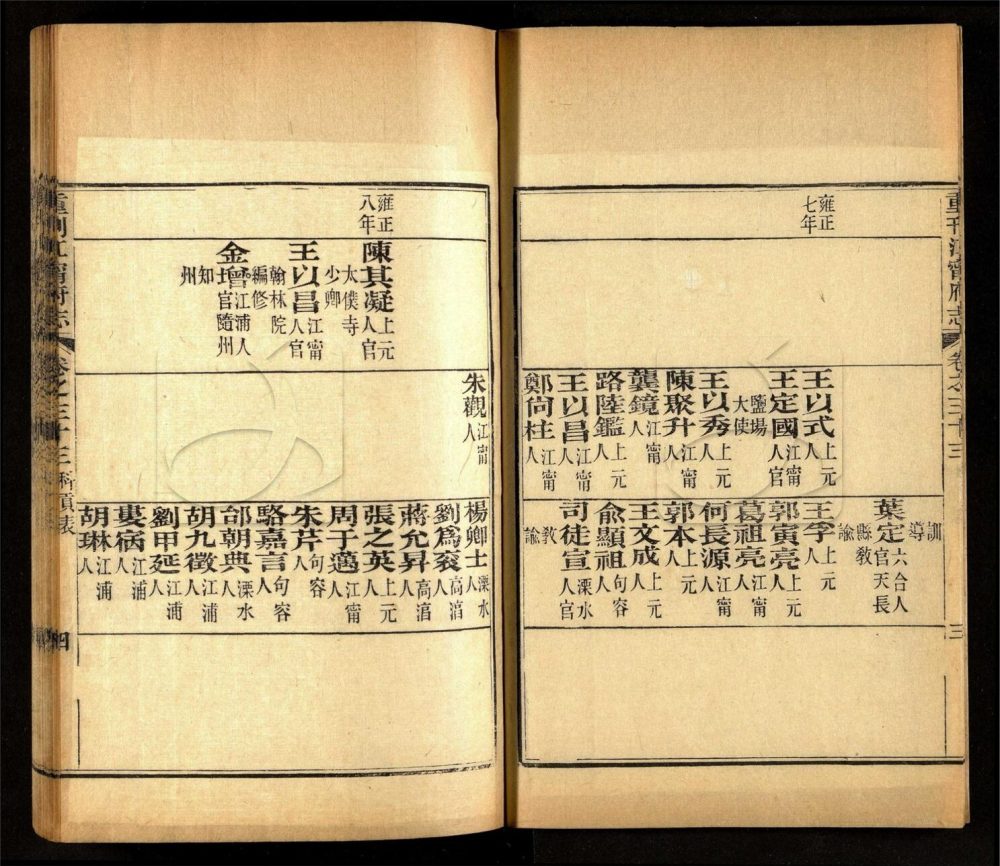 重刊江甯府志 卷之三十三 三
雍正
七年
王以式上元人
王定國江甯人官
鹽場
大使
王以秀上元人
陳聚升江甯人
龔鏡江甯人
路陸鑑上元人
王以昌江甯人
鄭尙柱江甯人
訓
導
葉定六合人官天長
縣教
諭
王孚上元人
郭寅亮上元人
葛祖亮江甯人
何長源江甯人
郭本上元人
王文成上元人
俞顯祖句容人
司徒宣溧水人官
教
諭
雍正
八年
陳其凝上元人官
太僕寺
少卿
王以昌江甯人官
翰林院
編修
金增江浦人官隨州
知
州
朱觀江甯人
楊卿士溧水人
劉爲衮高湻人
蔣允昇高湻人
張之英上元人
周于邁江甯人
朱芹句容人
駱嘉言句容人
邰朝典溧水人
胡九徵江浦人
劉甲延江浦人
江浦人
胡琳江浦人
重刊江甯府志 卷之三十三 科貢表 四